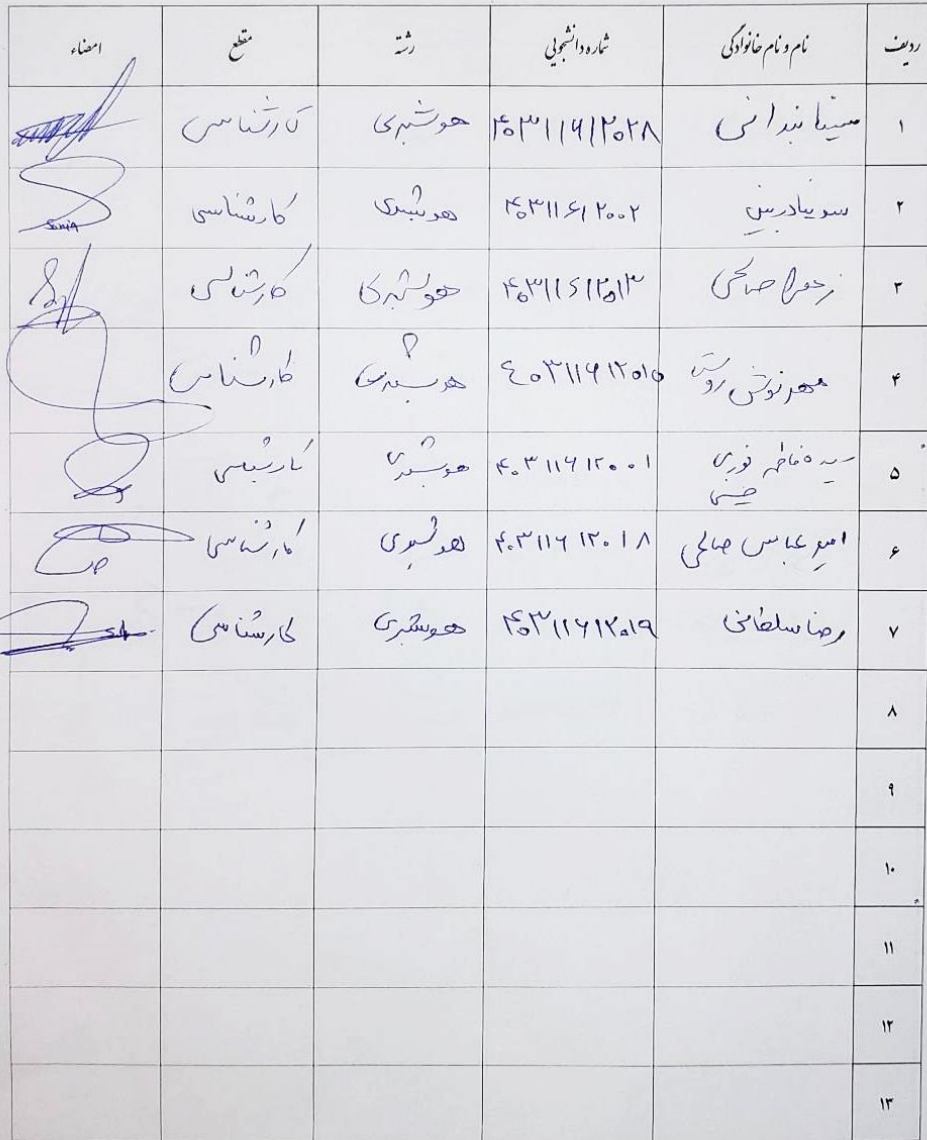 ردیف نام و نام خانوادگی شماره دانشجویی رشته مقطع امضاء
۱ مینا بندانی ۴۰۳۱۱۶۱۲۰۲۸ هوشبری کارشناسی
۲ سونیا دربین ۴۰۳۱۱۶۱۲۰۰۲ هوشبری کارشناسی Sonia
۳ زهرا صالحی ۴۰۳۱۱۶۱۲۰۱۳ هوشبری کارشناسی
۴ مهرنوش روستی ۴۰۳۱۱۶۱۲۰۱۵ هوشبری کارشناسی
۵ سیده فاطمه نوری ۴۰۳۱۱۶۱۲۰۰۱ هوشبری کارشناسی
۶ امیر عباس صالحی ۴۰۳۱۱۶۱۲۰۱۸ هوشبری کارشناسی
۷ رضا سلطانی ۴۰۳۱۱۶۱۲۰۱۹ هوشبری کارشناسی
۸
۹
۱۰
۱۱
۱۲
۱۳